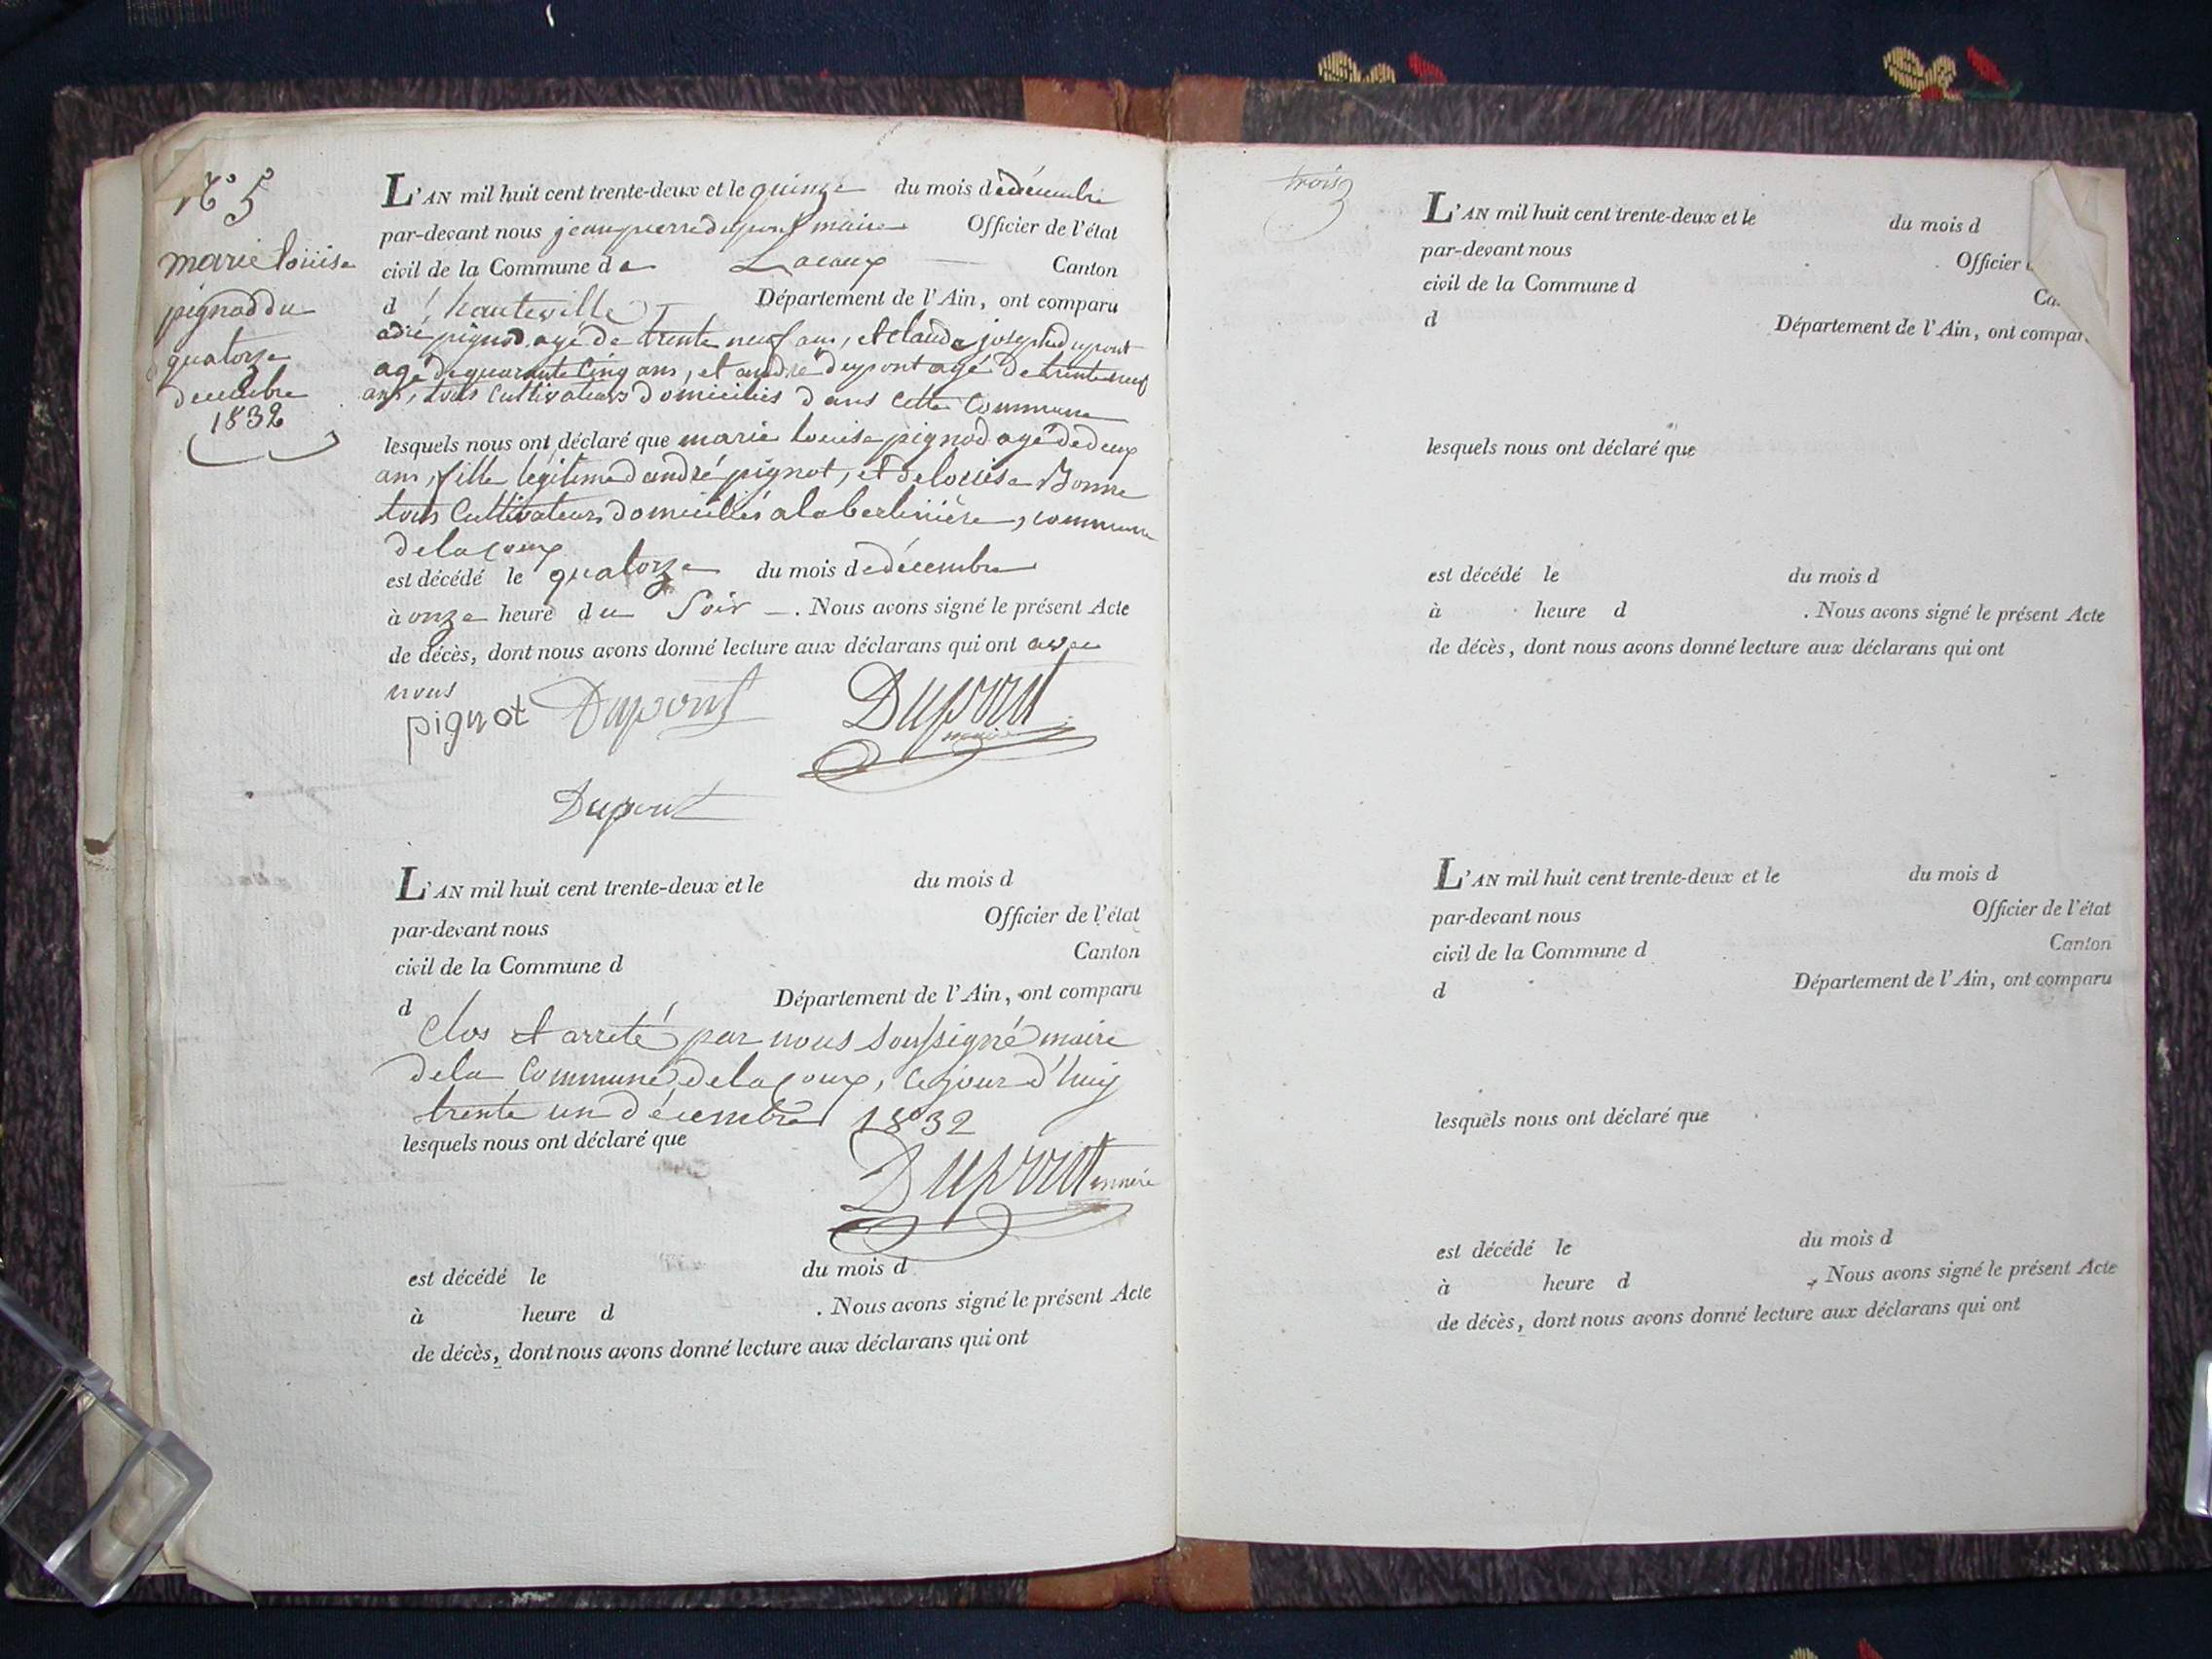 N° 5
marie louise
pignod du
quatorze
decembre
1832
L'AN mil huit cent trente-deux et le quinze du mois de décembre
par-devant nous jean pierre dupont maire Officier de l'état
civil de la Commune de Lacoux Canton
d'hauteville Département de l'Ain, ont comparu
pignod, agé de trente neuf ans, et claude joseph dupont
agé de quarante cinq ans, et andré dupont agé de trente neuf
ans, tous cultivateurs domiciliés dans cette commune
lesquels nous ont déclaré que marie louise pignod agé de deux
ans, fille légitime d andré pignot, et de louise Bonne
tous cultivateurs domiciliés a la berlinière, commune
de lacoux
est décédé le quatorze du mois de décembre
à onze heure du soir. Nous avons signé le présent Acte
de décès, dont nous avons donné lecture aux déclarans qui ont avec
nous
pignot Dupont Dupont
maire
Dupont
L'AN mil huit cent trente-deux et le du mois d
par-devant nous Officier de l'état
civil de la Commune d Canton
d Département de l'Ain, ont comparu
Clos et arreté par nous soussigné maire
de la Commune de lacoux, ce jour d'huy
trente un décembre 1832
lesquels nous ont déclaré que
Dupont maire
est décédé le du mois d
à heure d . Nous avons signé le présent Acte
de décès, dont nous avons donné lecture aux déclarans qui ont
trois
3
L'AN mil huit cent trente-deux et le du mois d
par-devant nous Officier
civil de la Commune d Ca
d Département de l'Ain, ont compar
lesquels nous ont déclaré que
est décédé le du mois d
à heure d . Nous avons signé le présent Acte
de décès, dont nous avons donné lecture aux déclarans qui ont
L'AN mil huit cent trente-deux et le du mois d
par-devant nous Officier de l'état
civil de la Commune d Canton
d Département de l'Ain, ont comparu
lesquels nous ont déclaré que
est décédé le du mois d
à heure d . Nous avons signé le présent Acte
de décès, dont nous avons donné lecture aux déclarans qui ont